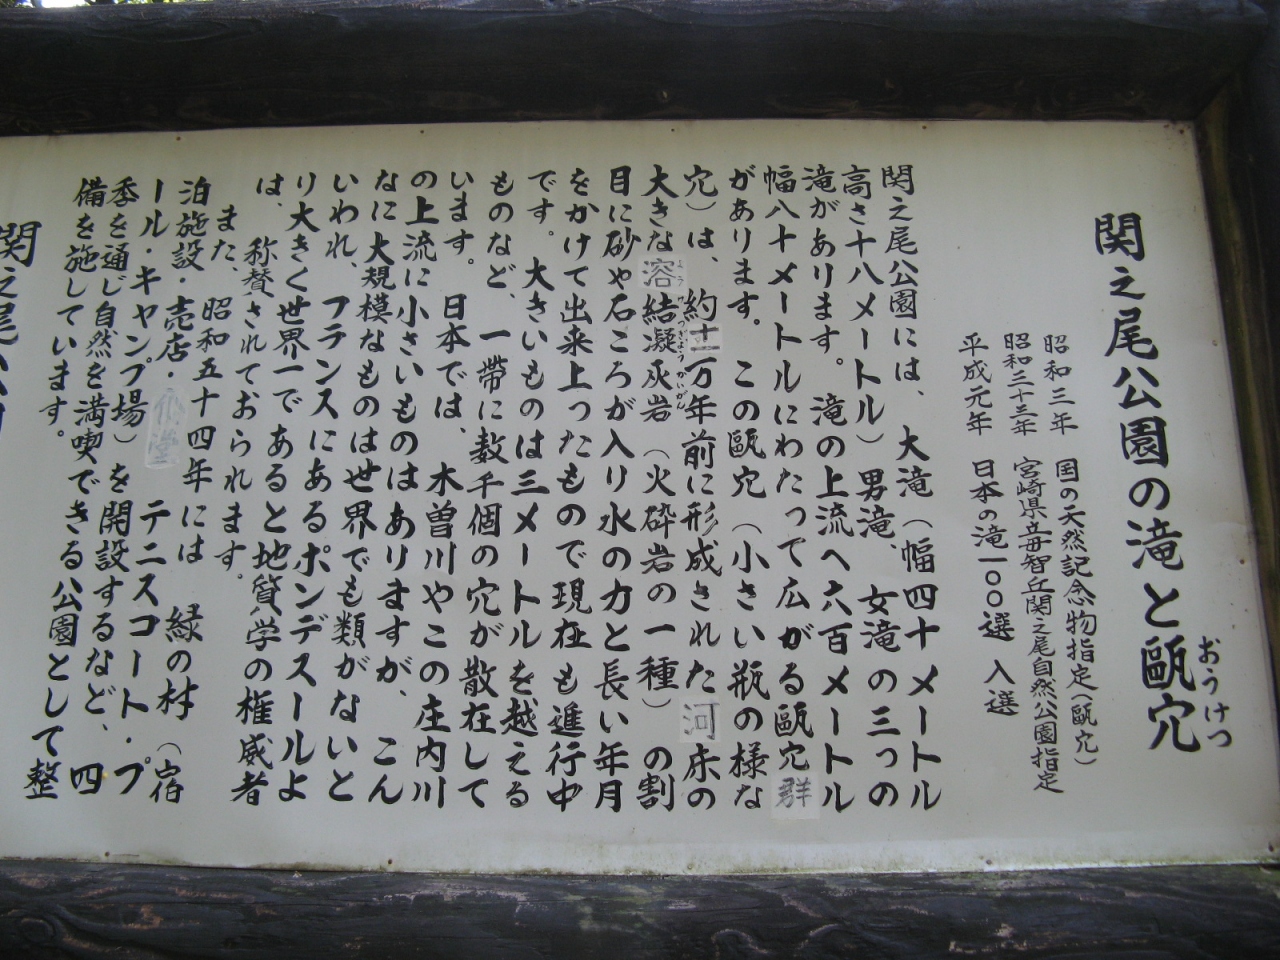 関之尾公園の滝と甌穴
おうけつ
昭和三年 国の天然記念物指定(甌穴)
昭和三十三年 宮崎県立母智丘関之尾自然公園指定
平成元年 日本の滝一〇〇選 入選
関之尾公園には、大滝(幅四十メートル
高さ十八メートル)男滝、女滝の三つの
滝があります。滝の上流へ六百メートル
幅八十メートルにわたって広がる甌穴群
があります。この甌穴(小さい瓶の様な
穴)は、約十一万年前に形成された河床の
大きな溶結凝灰岩(火砕岩の一種)の割
ようけつぎょうかいがん
目に砂や石ころが入り水の力と長い年月
をかけて出来上ったもので現在も進行中
です。大きいものは三メートルを越える
ものなど、一帯に数千個の穴が散在して
います。日本では、木曽川やこの庄内川
の上流に小さいものはありますが、こん
なに大規模なものは世界でも類がないと
いわれ、フランスにあるポンデスールよ
り大きく世界一であると地質学の権威者
は、称賛されておられます。
また、昭和五十四年には 緑の村(宿
泊施設・売店・ テニスコート・プ
ール・キャンプ場)を開設するなど、四
季を通じ自然を満喫できる公園として整
備を施しています。
関之尾公